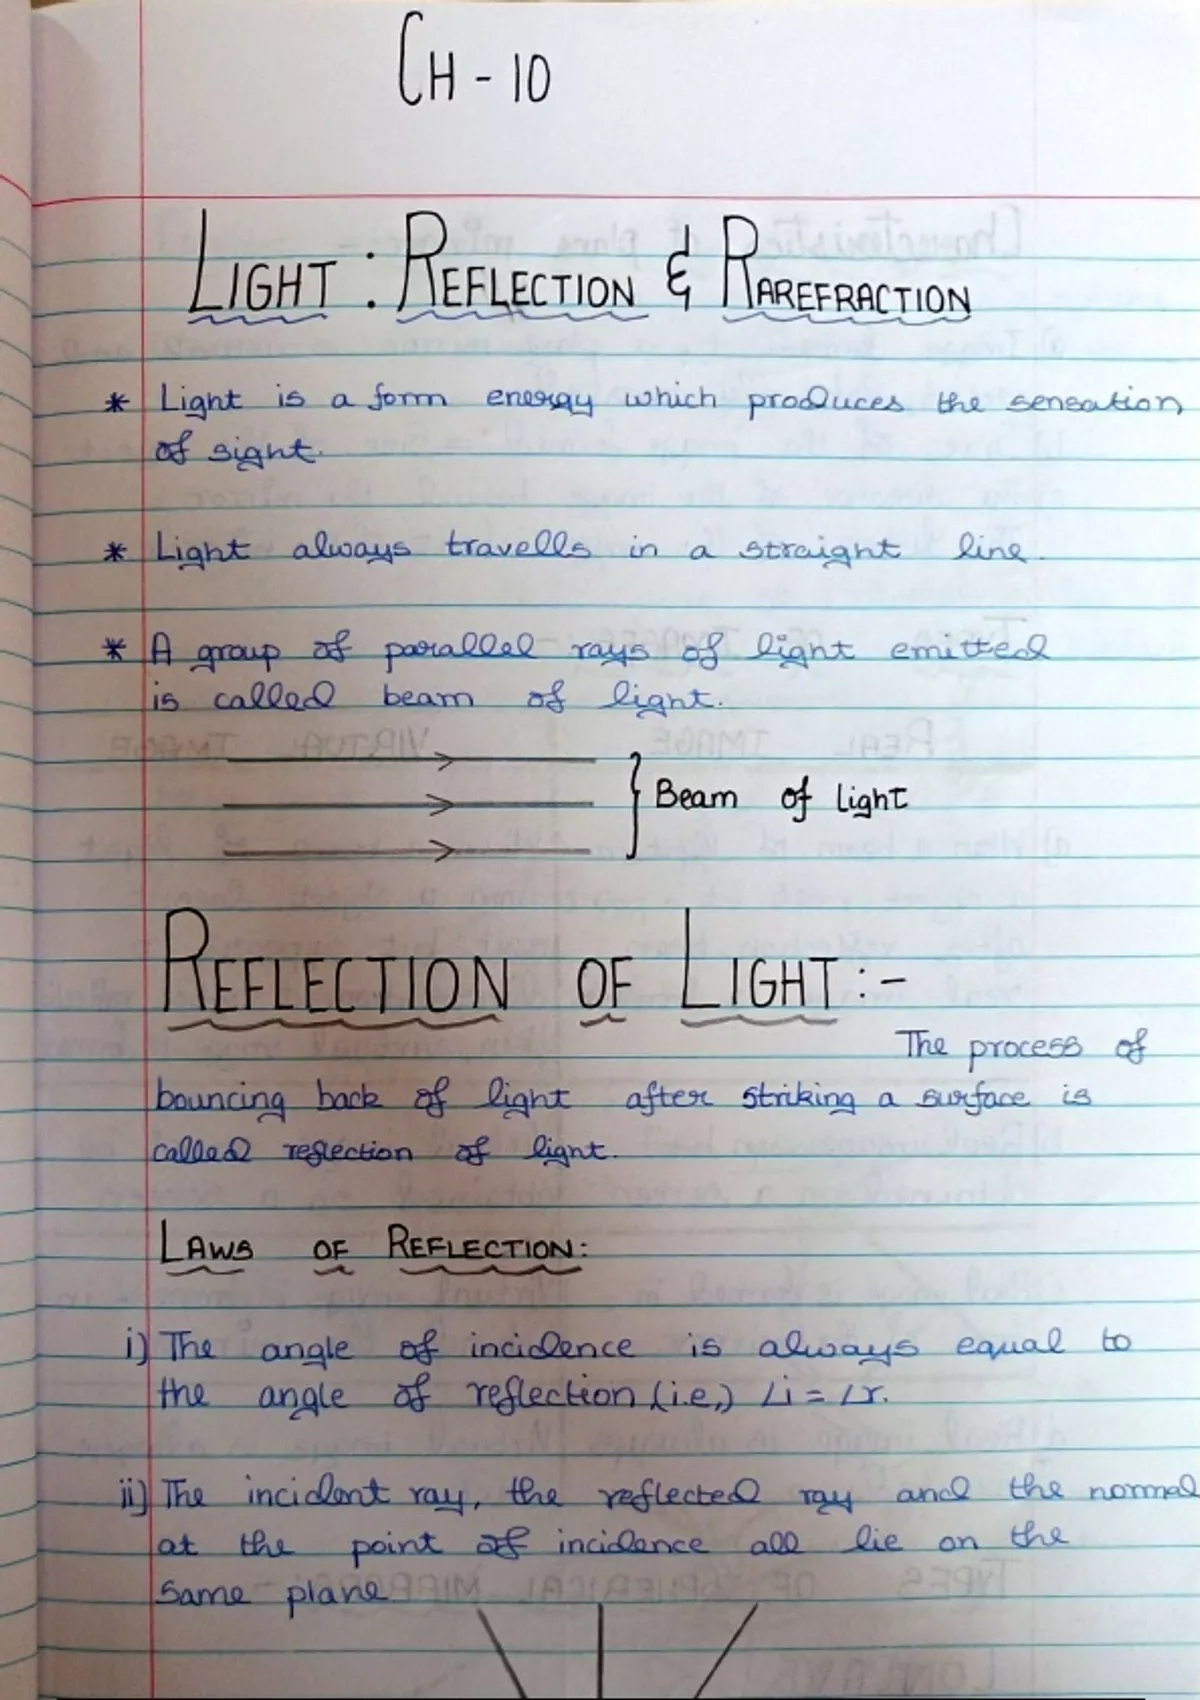 CH - 10
LIGHT : REFLECTION & RAREFRACTION
* Light is a form energy which produces the sensation
of sight.
* Light always travells in a straight line.
* A group of parallel rays of light emitted
is called beam of light.
Beam of light
REFLECTION OF LIGHT :-
The process of
bouncing back of light after striking a surface is
called reflection of light.
LAWS OF REFLECTION:
i) The angle of incidence is always equal to
the angle of reflection (i.e.,) ∠i = ∠r.
ii) The incident ray, the reflected ray and the normal
at the point of incidence all lie on the
same plane